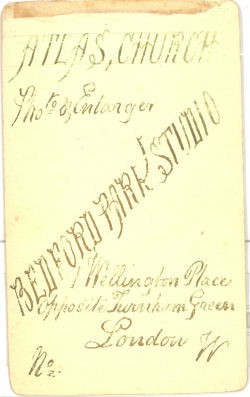 ATLAS, CHURCH
Photo & Enlarger
BEDFORD PARK STUDIO
1 Wellington Place
Opposite Turnham Green
London W
No.